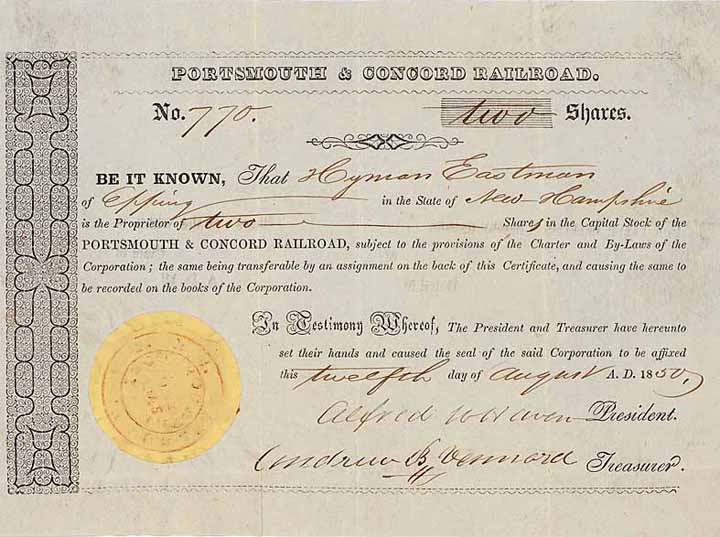 PORTSMOUTH & CONCORD RAILROAD.
No. 770. two Shares.
BE IT KNOWN, That Hyman Eastman
of Epping in the State of New-Hampshire
is the Proprietor of two Shares in the Capital Stock of the
PORTSMOUTH & CONCORD RAILROAD, subject to the provisions of the Charter and By-Laws of the
Corporation; the same being transferable by an assignment on the back of this Certificate, and causing the same to
be recorded on the books of the Corporation.
In Testimony Whereof, The President and Treasurer have hereunto
set their hands and caused the seal of the said Corporation to be affixed
this twelfth day of August A. D. 1850,
Alfred W Haven President.
Andrew B Vennard Treasurer.